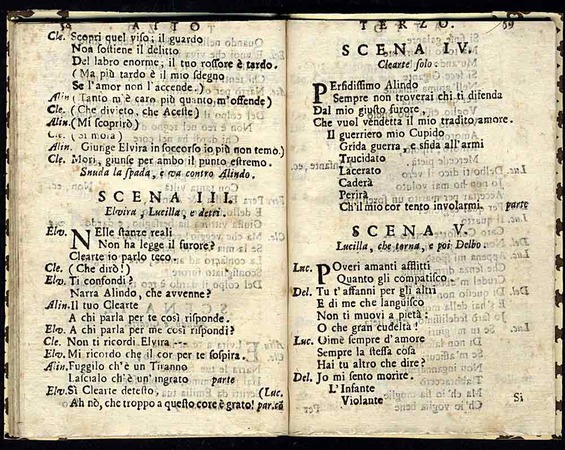 58 ATTO
Cle. Scopri quel viso; il guardo
Non sostiene il delitto
Del labro enorme; il tuo rossore è tardo.
( Ma più tardo è il mio sdegno
Se l'amor non l'accende. )
Alin. ( Tanto m'è caro più quanto m'offende )
Cle. ( Che divieto, che Aceste )
Alin. ( Mi scoprirò )
Cle. ( Si mora )
Alin. Giunge Elvira in soccorso io più non temo. )
Cle. Mori, giunse per ambo il punto estremo.
Snuda la spada, e va contro Alindo.
SCENA III.
Elvira, Lucilla, e detti.
Elv. NElle stanze reali
Non ha legge il furore?
Clearte io parlo teco.
Cle. ( Che dirò! )
Elv. Ti confondi?
Narra Alindo, che avvenne?
Alin. Il tuo Clearte
A chi parla per te così risponde.
Elv. A chi parla per me così rispondi?
Cle. Non ti ricordi Elvira ---
Elv. Mi ricordo che il cor per te sospira.
Alin. Fuggilo ch'è un Tiranno
Lascialo ch'è un'ingrato parte
Elv. Sì Clearte detesto, (Luc.
Ah nò, che troppo a questo core è grato! par.cõ
TERZO. 59
SCENA IV.
Clearte solo.
PErfidissimo Alindo
Sempre non troverai chi ti difenda
Dal mio giusto furore
Che vuol vendetta il mio tradito amore.
Il guerriero mio Cupido
Grida guerra, e sfida all'armi
Trucidato
Lacerato
Caderà
Perirà
Ch'il mio cor tento involarmi. parte
SCENA V.
Lucilla, che torna, e poi Delbo.
Luc. POveri amanti afflitti
Quanto gli compatisco
Del. Tu t'affanni per gli altri
E di me che languisco
Non ti muovi a pietà:
O che gran cudeltà!
Luc. Oimè sempre d'amore
Sempre la stessa cosa
Hai tu altro che dire?
Del. Jo mi sento morire.
L'Infante
Violante
Si